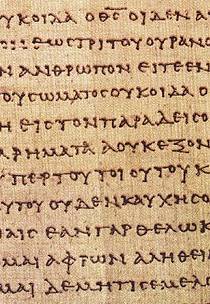 ΥΚΟΙΔΑ ΟΘ̅Ϲ̅ ΟΙΔΕΝ Α
ΕΩϹΤΡΙΤΟΥ ΟΥΡΑΝΟ
Ν ΑΝΘΡΩΠΟΝ ΕΙΤΕ ΕΝ
ΟΥϹΩΜΑΤΟϹ ΟΥΚΟΙΔΑ Ο
Η ΕΙϹ ΤΟΝ ΠΑΡΑΔΕΙϹΟ
ΑΡΗΜΑΤΑ ΑΟΥΚΕΞΟΝ
ΠΕΡΤΟΥ ΤΟΙΟΥΤΟΥ Κ
ΥΤΟΥ ΟΥΔΕΝ ΚΑΥΧΗϹΟ
ΑΙϹ ΕΑΝ ΓΑΡ ΘΕΛΩ Κ
ΜΑΙ ΑΦΡΩΝ ΑΛΗΘΕΙΑ
ΜΑΙ ΔΕ ΜΗ ΤΙϹ ΕΜΕ ΛΟ